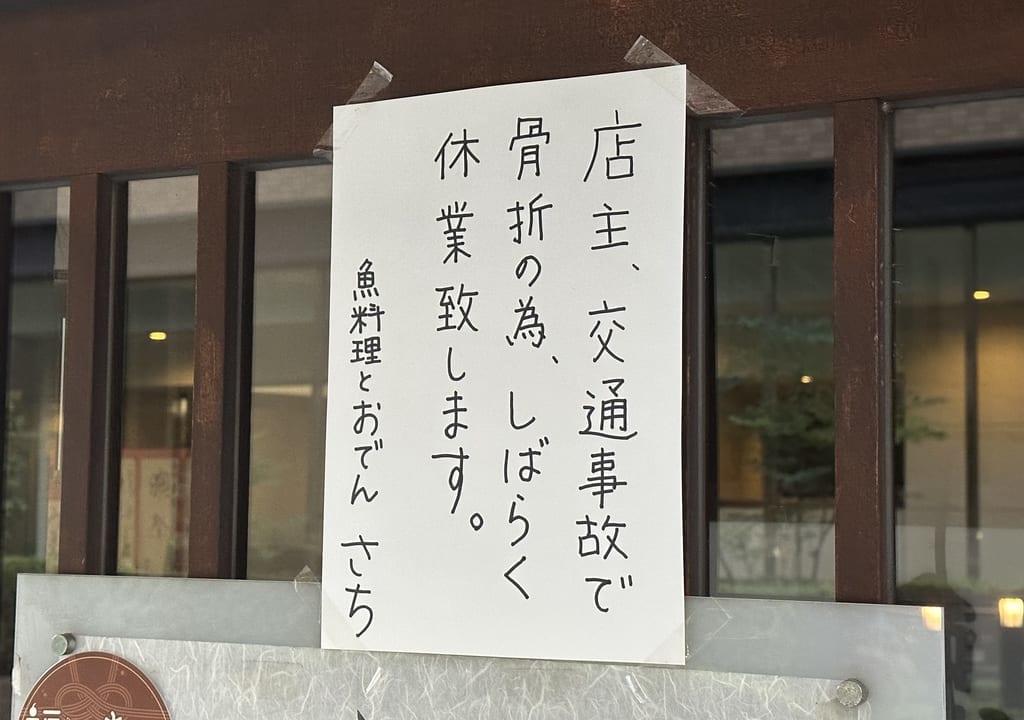 店主、交通事故で
骨折の為、しばらく
休業致します。
魚料理とおでん さち